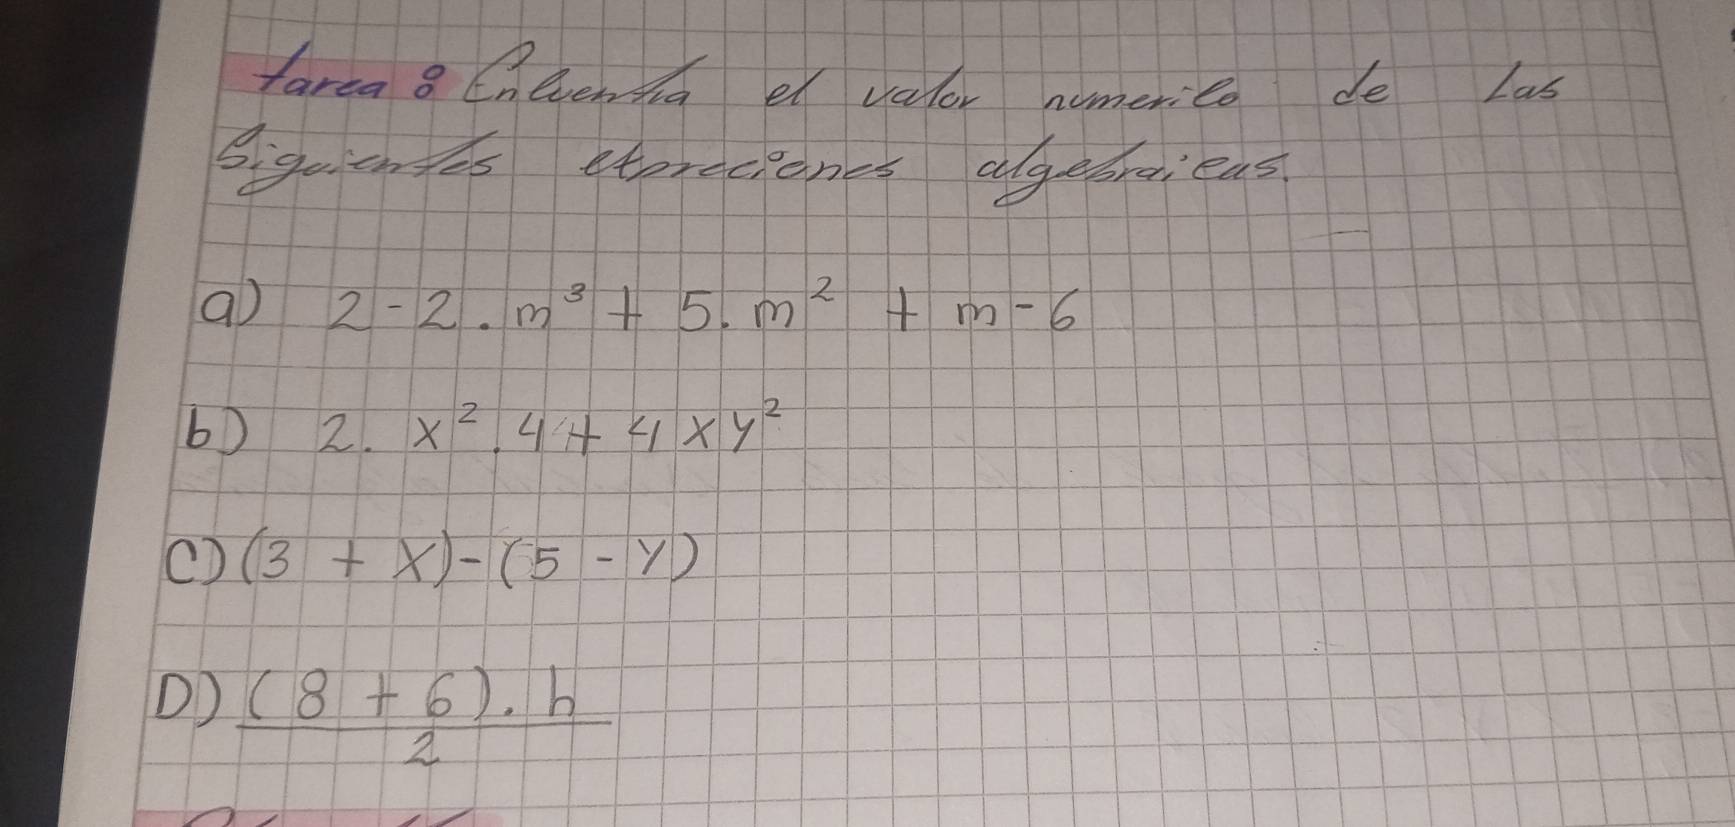 tarea 8 Encuentra el valor numerico de Las
Siguientes expreciones algebraicas.
a) 2-2.m³ + 5.m² + m-6
b) 2. x².4 + 4xy²
C) (3 + x)-(5 - y)
D) (8 + 6). h
2